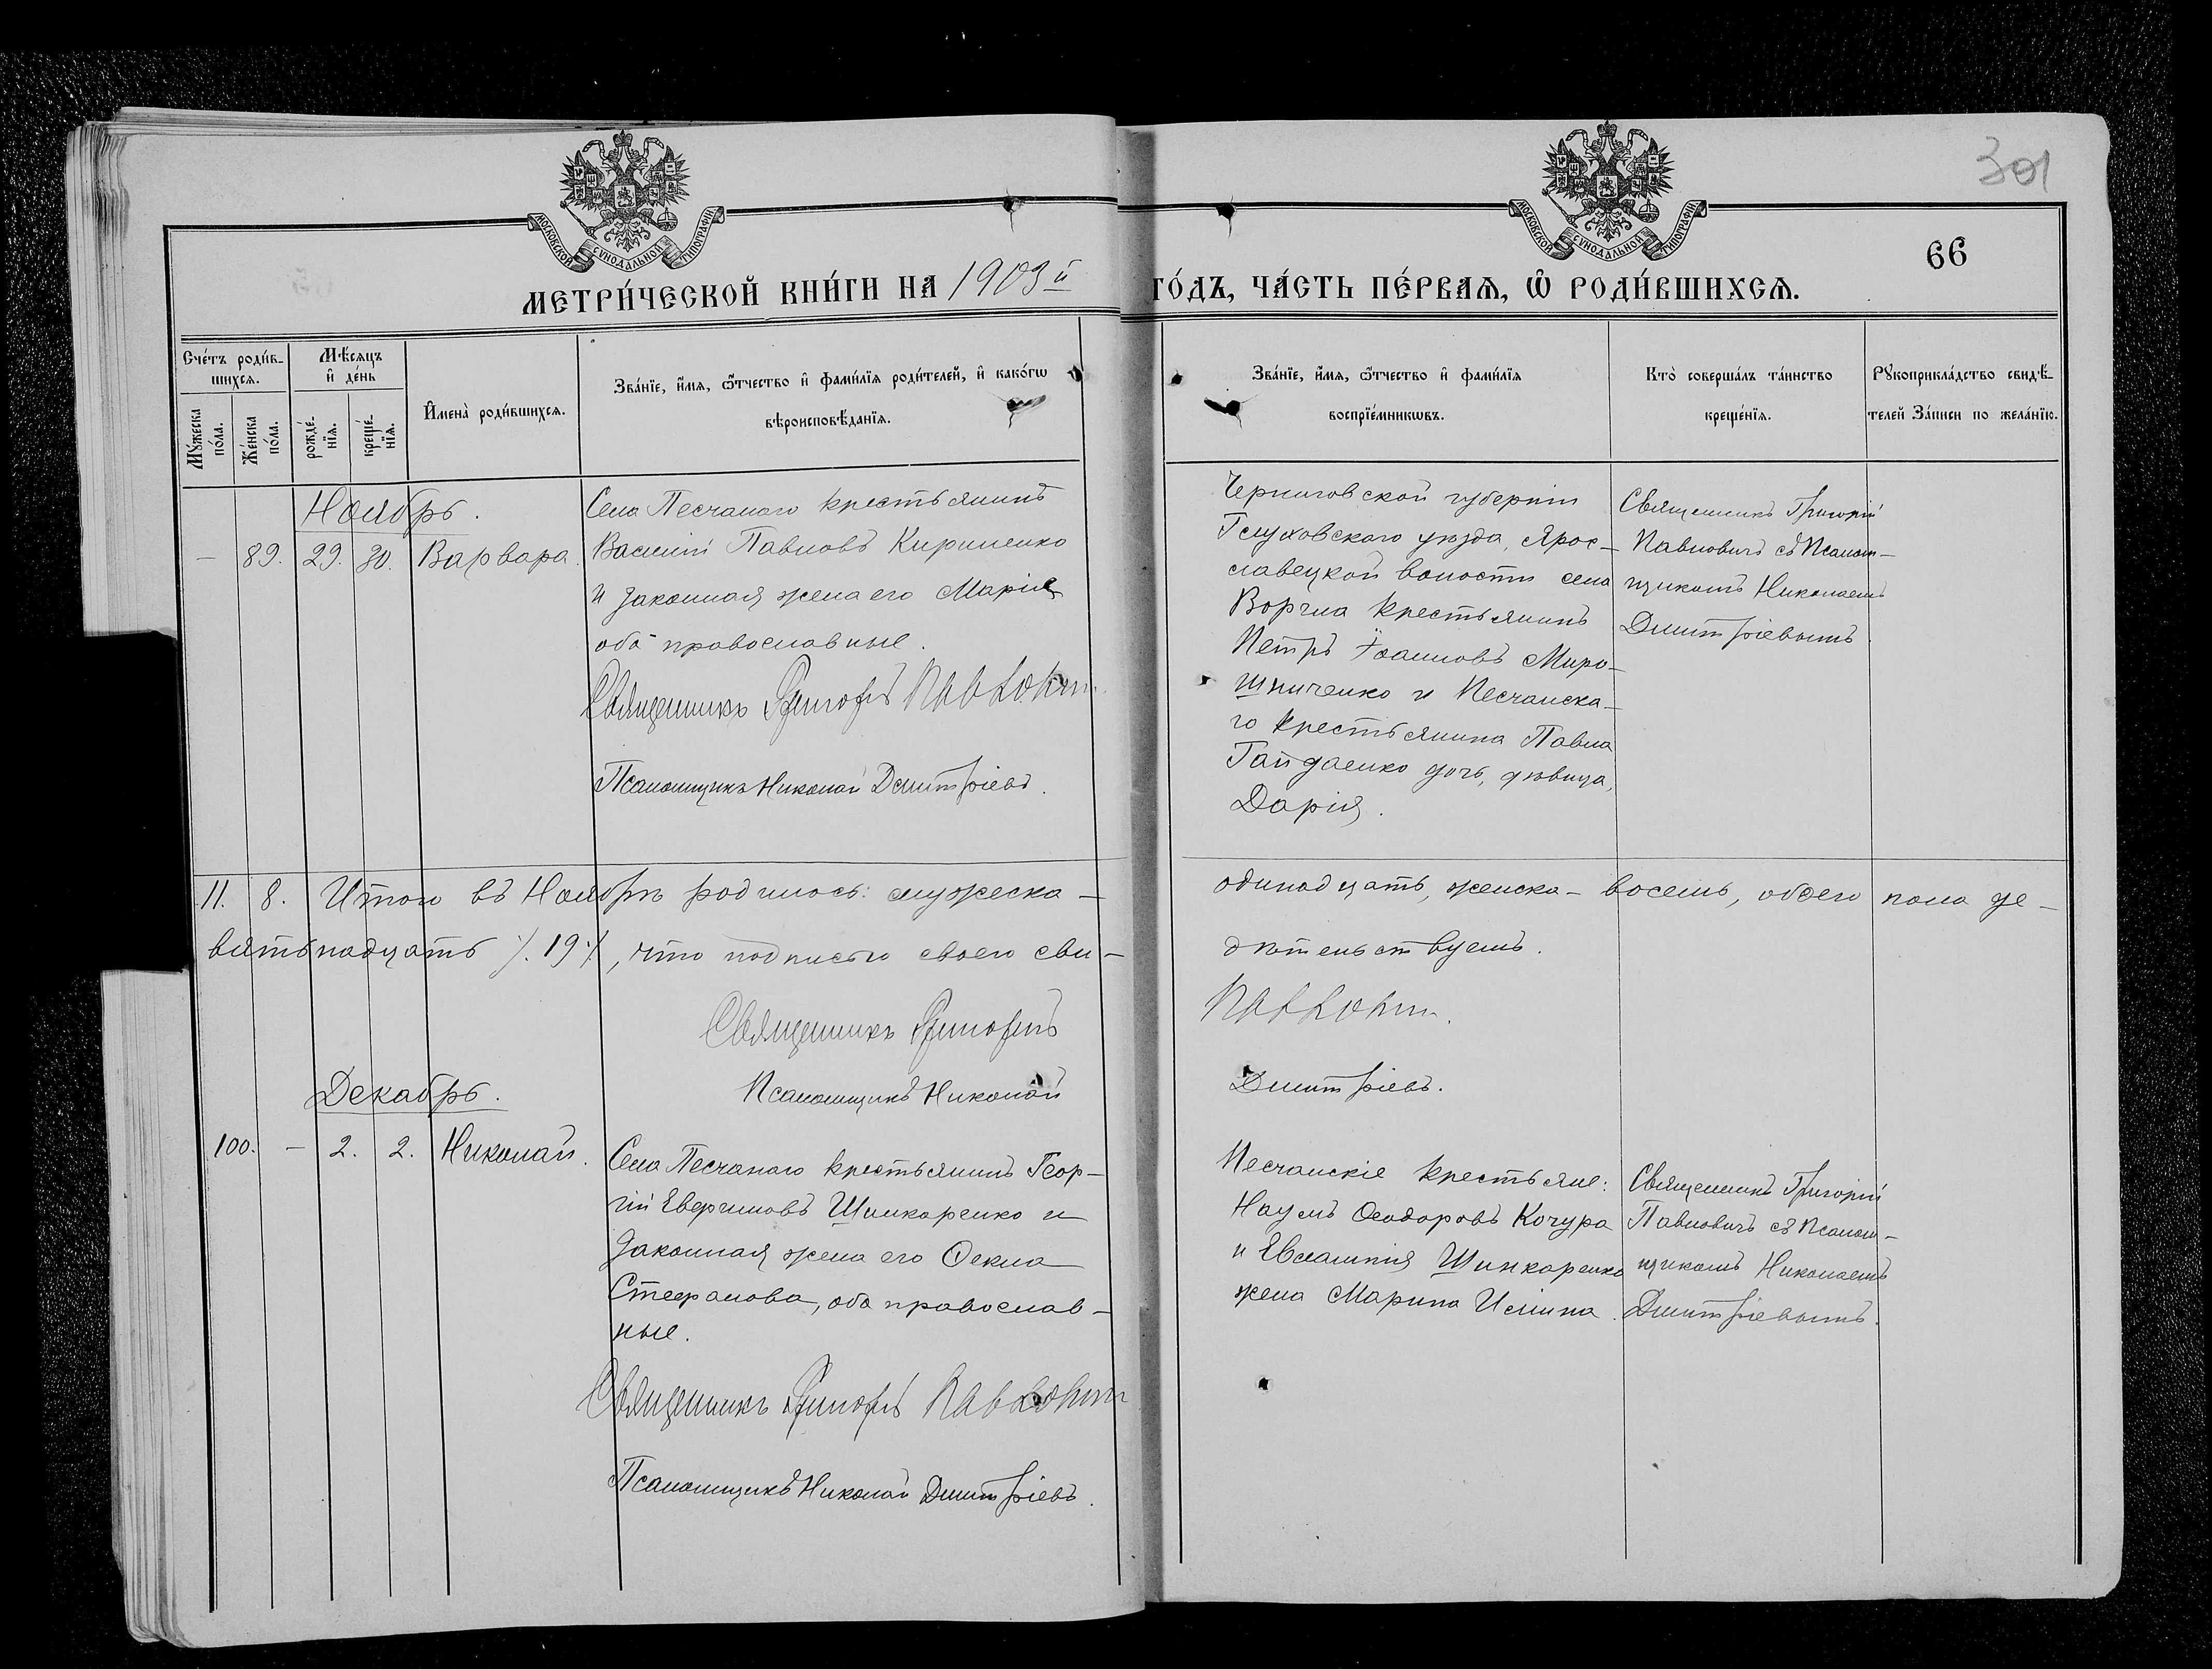 301
66
МОСКОВСКОЙ СѴНОДАЛЬНОЙ ТИПОГРАФІИ
МОСКОВСКОЙ СѴНОДАЛЬНОЙ ТИПОГРАФІИ
МЕТРИ́ЧЕСКОЙ КНИ́ГИ НА 1903й
ГО́ДЪ, ЧА́СТЬ ПЕ́РВАѦ, Ѡ҆ РОДИ́ВШИХСѦ.
Сче́тъ роди́в-
шихсѧ.
Мѣ́сѧцъ
и҆ де́нь
Мꙋ́жеска
по́ла.
Же́нска
по́ла.
рожде́-
нїѧ.
креще́-
нїѧ.
И҆мена̀ роди́вшихсѧ.
Зва́нїе, и҆́мѧ, ѻ҆́тчество и҆ фами́лїѧ роди́телей, и҆ како́гѡ
вѣроисповѣ́данїѧ.
Зва́нїе, и҆́мѧ, ѻ҆́тчество и҆ фами́лїѧ
воспрїе́мникѡвъ.
Кто̀ соверша́лъ та́инство
креще́нїѧ.
Рꙋкоприкла́дство свидѣ́-
телей За́писи по жела́нїю.
Ноябрь.
— 89. 29. 30. Варвара.
Села Песчаного крестьянинъ
Василій Павловъ Кириленко
и законная жена его Марія
оба православные.
Священникъ Григорій Павловичъ
Псаломщикъ Николай Дмитріевъ.
Черниговской губерніи
Глуховского уѣзда, Ярос-
славецкой волости села
Воргла крестьянинъ
Петръ Іоанновъ Миро-
шниченко и Песчанска-
го крестьянина Павла
Гайдаенко дочь, дѣвица,
Дарія.
Священникъ Григорій
Павловичъ съ Псалом-
щикомъ Николаемъ
Дмитріевымъ.
11. 8. Итого въ Ноябрѣ родилось: мужеска —
одинадцать, женска — восемь, обоего пола де-
вятьнадцать ./. 19 ./., что подписью своею сви-
дѣтельствуемъ.
Священникъ Григорій
Павловичъ.
Псаломщикъ Николай
Дмитріевъ.
Декабрь.
100. — 2. 2. Николай.
Села Песчаного крестьянинъ Геор-
гій Евергиловъ Шинкаренко и
законная жена его Ѳекла
Стефанова, оба православ-
ные.
Священникъ Григорій Павловичъ
Псаломщикъ Николай Дмитріевъ.
Песчанскіе крестьяне:
Наумъ Ѳеодоровъ Кочура
и Евлампія Шинкаренко
жена Марина Иліина.
Священникъ Григорій
Павловичъ съ Псалом-
щикомъ Николаемъ
Дмитріевымъ.